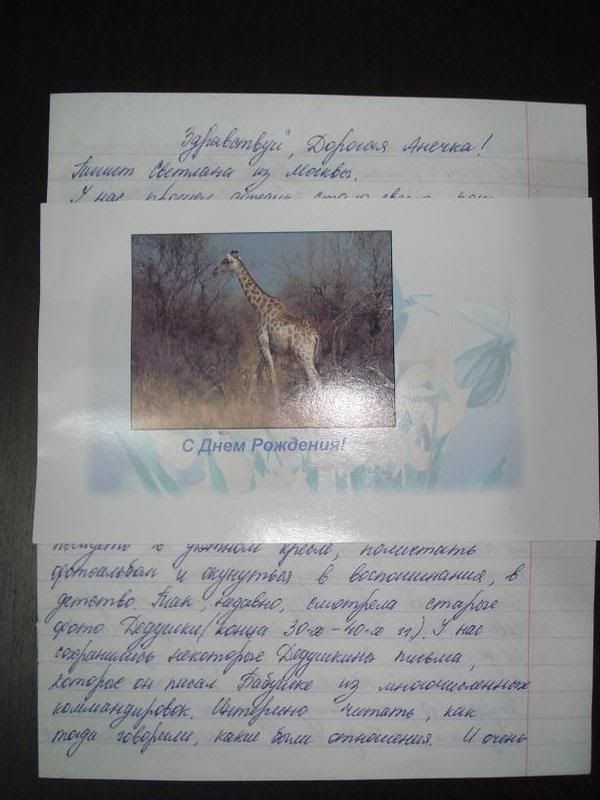 Здравствуй, Дорогая Анечка!
Пишет Светлана из Москвы.
У нас прошел
С Днем Рождения!
в уютном кресле, полистать
фотоальбом и окунуться в воспоминания, в
детство. Так, недавно, смотрела старые
фото Дедушки (конца 30-х – 40-х гг). У нас
сохранились некоторые Дедушкины письма,
которые он писал Бабушке из многочисленных
коммандировок. Интересно читать, как
тогда говорили, какие были отношения. И очень